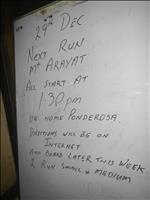 29th DEC
NEXT RUN
MT ARAYAT
ALL START AT
1.30pm
OR HOME PONDEROSA.
DIRECTIONS WILL BE ON
INTERNET
AND BOARD LATER THIS WEEK
2 RUN SMALL MEDIUM